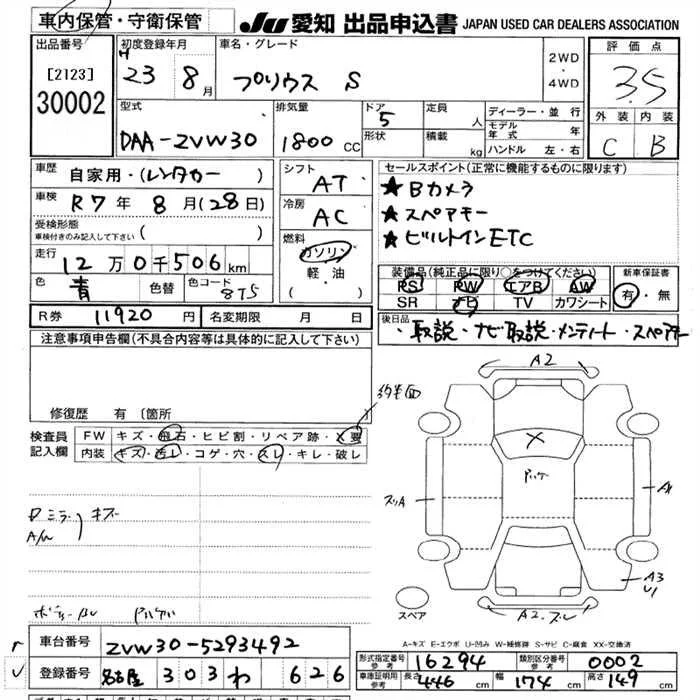 車内保管・守衛保管 JU 愛知 出品申込書 JAPAN USED CAR DEALERS ASSOCIATION
出品番号 [2123] 30002
初度登録年月 H 23 8月
車名・グレード プリウス S
2WD・4WD
評価点 3.5
外装 C 内装 B
型式 DAA-ZVW30
排気量 1800 CC
ドア 5 形状
定員 人 積載 kg
ディーラー・並行
モデル年式 年
ハンドル 左・右
車歴 自家用・(レンタカー)
車検 R7年 8月(28日)
受検形態 車検付きのみ記入して下さい ( )
走行 12万0千506km
色 青 色替 色コード 8T5
シフト AT
冷房 AC
燃料 ガソリン 軽・油 ( )
セールスポイント(正常に機能するものに限ります)
★Bカメラ
★スペアキー
★ビルトインETC
装備品(純正品に限り○をつけてください)
PS PW エアB AW
SR ナビ TV カワシート
新車保証書 有・無
R券 11920円 名変期限 月 日
後日品 ・取説・ナビ取説・メンテノート・スペアキー
注意事項申告欄(不具合内容等は具体的に記入して下さい)
修復歴 有 〔箇所
検査員記入欄
FW キズ・飛石・ヒビ割・リペア跡・X要
内装 キズ・汚レ・コゲ・穴・スレ・キレ・破レ
ミラー キズ
A/W
A2
X
スリA
A1
A3
U1
スペア
A2.スレ
A-キズ E-エクボ U-凹み W-補修跡 S-サビ C-腐食 XX-交換済
車台番号 ZVW30-5293492
登録番号 名古屋 303 わ 626
形式指定番号 参考 16294 類別区分番号 参考 0002
車庫証明用 参考 長さ 446 cm 幅 174 cm 高さ 149 cm